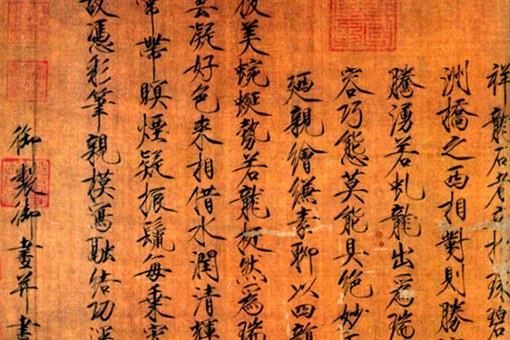 祥龍石者立於環碧
洲橋之西相對則勝
騰湧若虬龍出爲瑞
容巧態莫能具絕妙
廼親繪縑素聊以四韻
彼美蜿蜒勢若龍挺然爲瑞
雲凝好色來相借水潤清輝
常帶瞑煙疑振鬣每乘宵
故憑彩筆親模寫融結功深
御製御畫并書